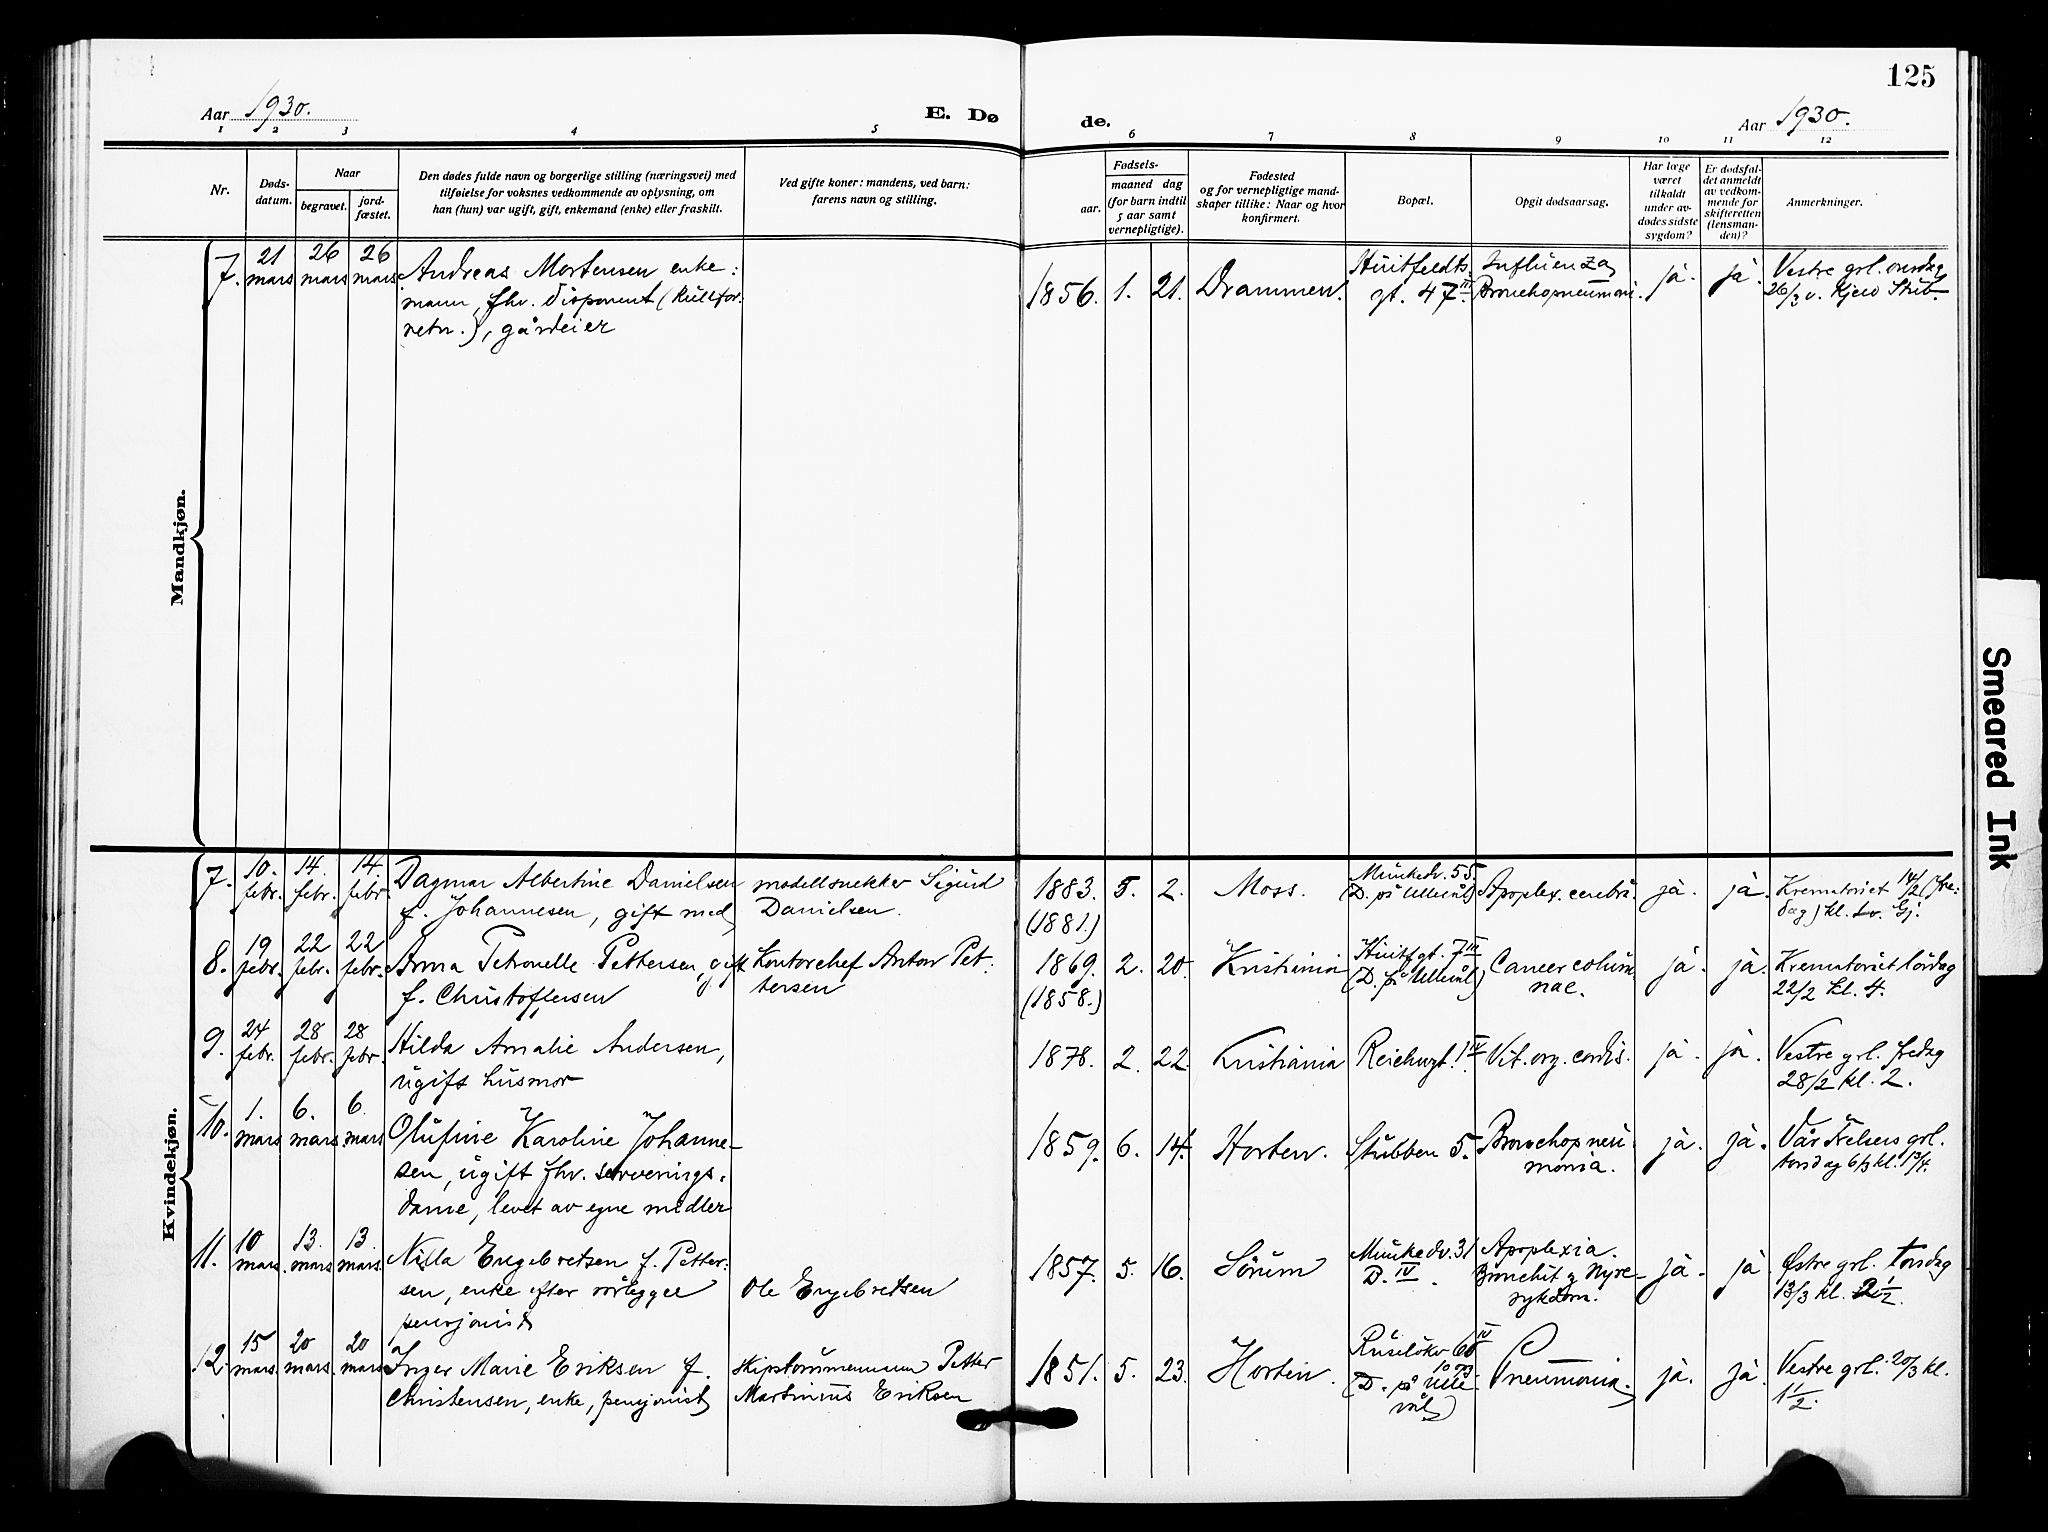 125
Aar 1930.
E. Dø
de.
Aar 1930.
1 2 3 4 5 6 7 8 9 10 11 12
Nr.
Døds-
datum.
Naar
begravet.
jord-
fæstet.
Den dødes fulde navn og borgerlige stilling (næringsvei) med
tilføielse for voksnes vedkommende av oplysning, om
han (hun) var ugift, gift, enkemand (enke) eller fraskilt.
Ved gifte koner: mandens, ved barn:
farens navn og stilling.
Fødsels-
aar.
maaned dag
(for barn indtil
5 aar samt
vernepligtige).
Fødested
og for vernepligtige mand-
skaper tillike: Naar og hvor
konfirmert.
Bopæl.
Opgit dødsaarsag.
Har læge
været
tilkaldt
under av-
dødes sidste
sygdom?
Er dødsfal-
det anmeldt
av vedkom-
mende for
skifteretten
(lensman-
den)?
Anmerkninger.
Mandkjøn.
7.
21
mars
26
mars
26
mars
Andreas Mortensen enke:
mann, fhv. disponent (kullfor-
retn.), gårdeier
1856. 1. 21. Drammen.
Huitfeldts
gt. 47 III
Influenza
Bronchopneumoni.
jà. jà.
Vestre grl. onsdag
26/3 v. Kjeld Stub.
Kvindekjøn.
7.
10.
febr.
14.
febr.
14.
febr.
Dagmar Albertine Danielsen
f. Johannesen, gift med
modellsnekker Sigurd
Danielsen.
1883. 5. 2. Moss.
(1881.)
Munkedv. 55.
(D. på Ullevål)
Apoplex. cerebri.
jà. jà.
Krematoriet 14/2 (fre:
dag) kl.
8.
19
febr.
22
febr.
22
febr.
Anna Petronelle Pettersen, gift
f. Christoffersen
Kontorchef Anton Pet:
tersen
1869. 2. 20. Kristiania
(1858.)
Huitf.gt. 7 III
(D. på Ullevål)
Cancer colum
nae.
jà. jà.
Krematoriet lördag
22/2 kl. 4.
9.
24
febr.
28
febr.
28
febr.
Hilda Amalie Andersen,
ugift husmor
1878. 2. 22. Kristiania
Reichwgt. 1 IV
Vit. org. cordis.
jà. jà.
Vestre grl. fredag
28/2 kl. 2.
10.
1.
mars
6.
mars
6.
mars
Olufine Karoline Johanne-
sen, ugift fhv. serverings-
dame, levet av egne midler
1859. 6. 14. Horten.
Stubben 5.
Bronchopneu
monia.
jà. jà.
Vår Frelsers grl.
torsdag 6/3 kl.
11.
10
mars.
13.
mars
13.
mars.
Nilla Engebretsen f. Petter:
sen, enke efter rörlegger
pensjonist
Ole Engebretsen
1857. 5. 16. Sörum
Munkedv. 31
D. IV.
Apoplexia.
Bronchit og Nyre-
sykdom.
jà. jà
Østre grl. torsdag
13/3 kl. 2 1/2.
12.
15
mars.
20
mars.
20
mars
Inger Marie Eriksen f.
Christensen, enke, pensjonist
skipstømmermann Petter
Martinius Eriksen
1851. 5. 23. Horten.
Ruselökv 60 IV
(D. på Ulle
vål)
Pneumonia.
jà. jà
Vestre grl. 20/3 kl.
1 1/2.
Smeared Ink